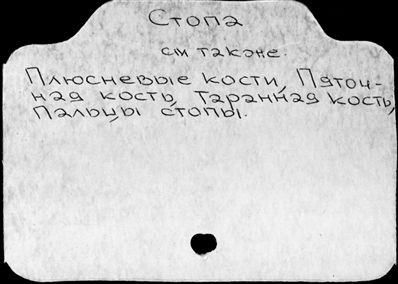 Стопа
см также.
Плюсневые кости, Пяточ-
ная кость, Таранная кость,
Пальцы стопы.